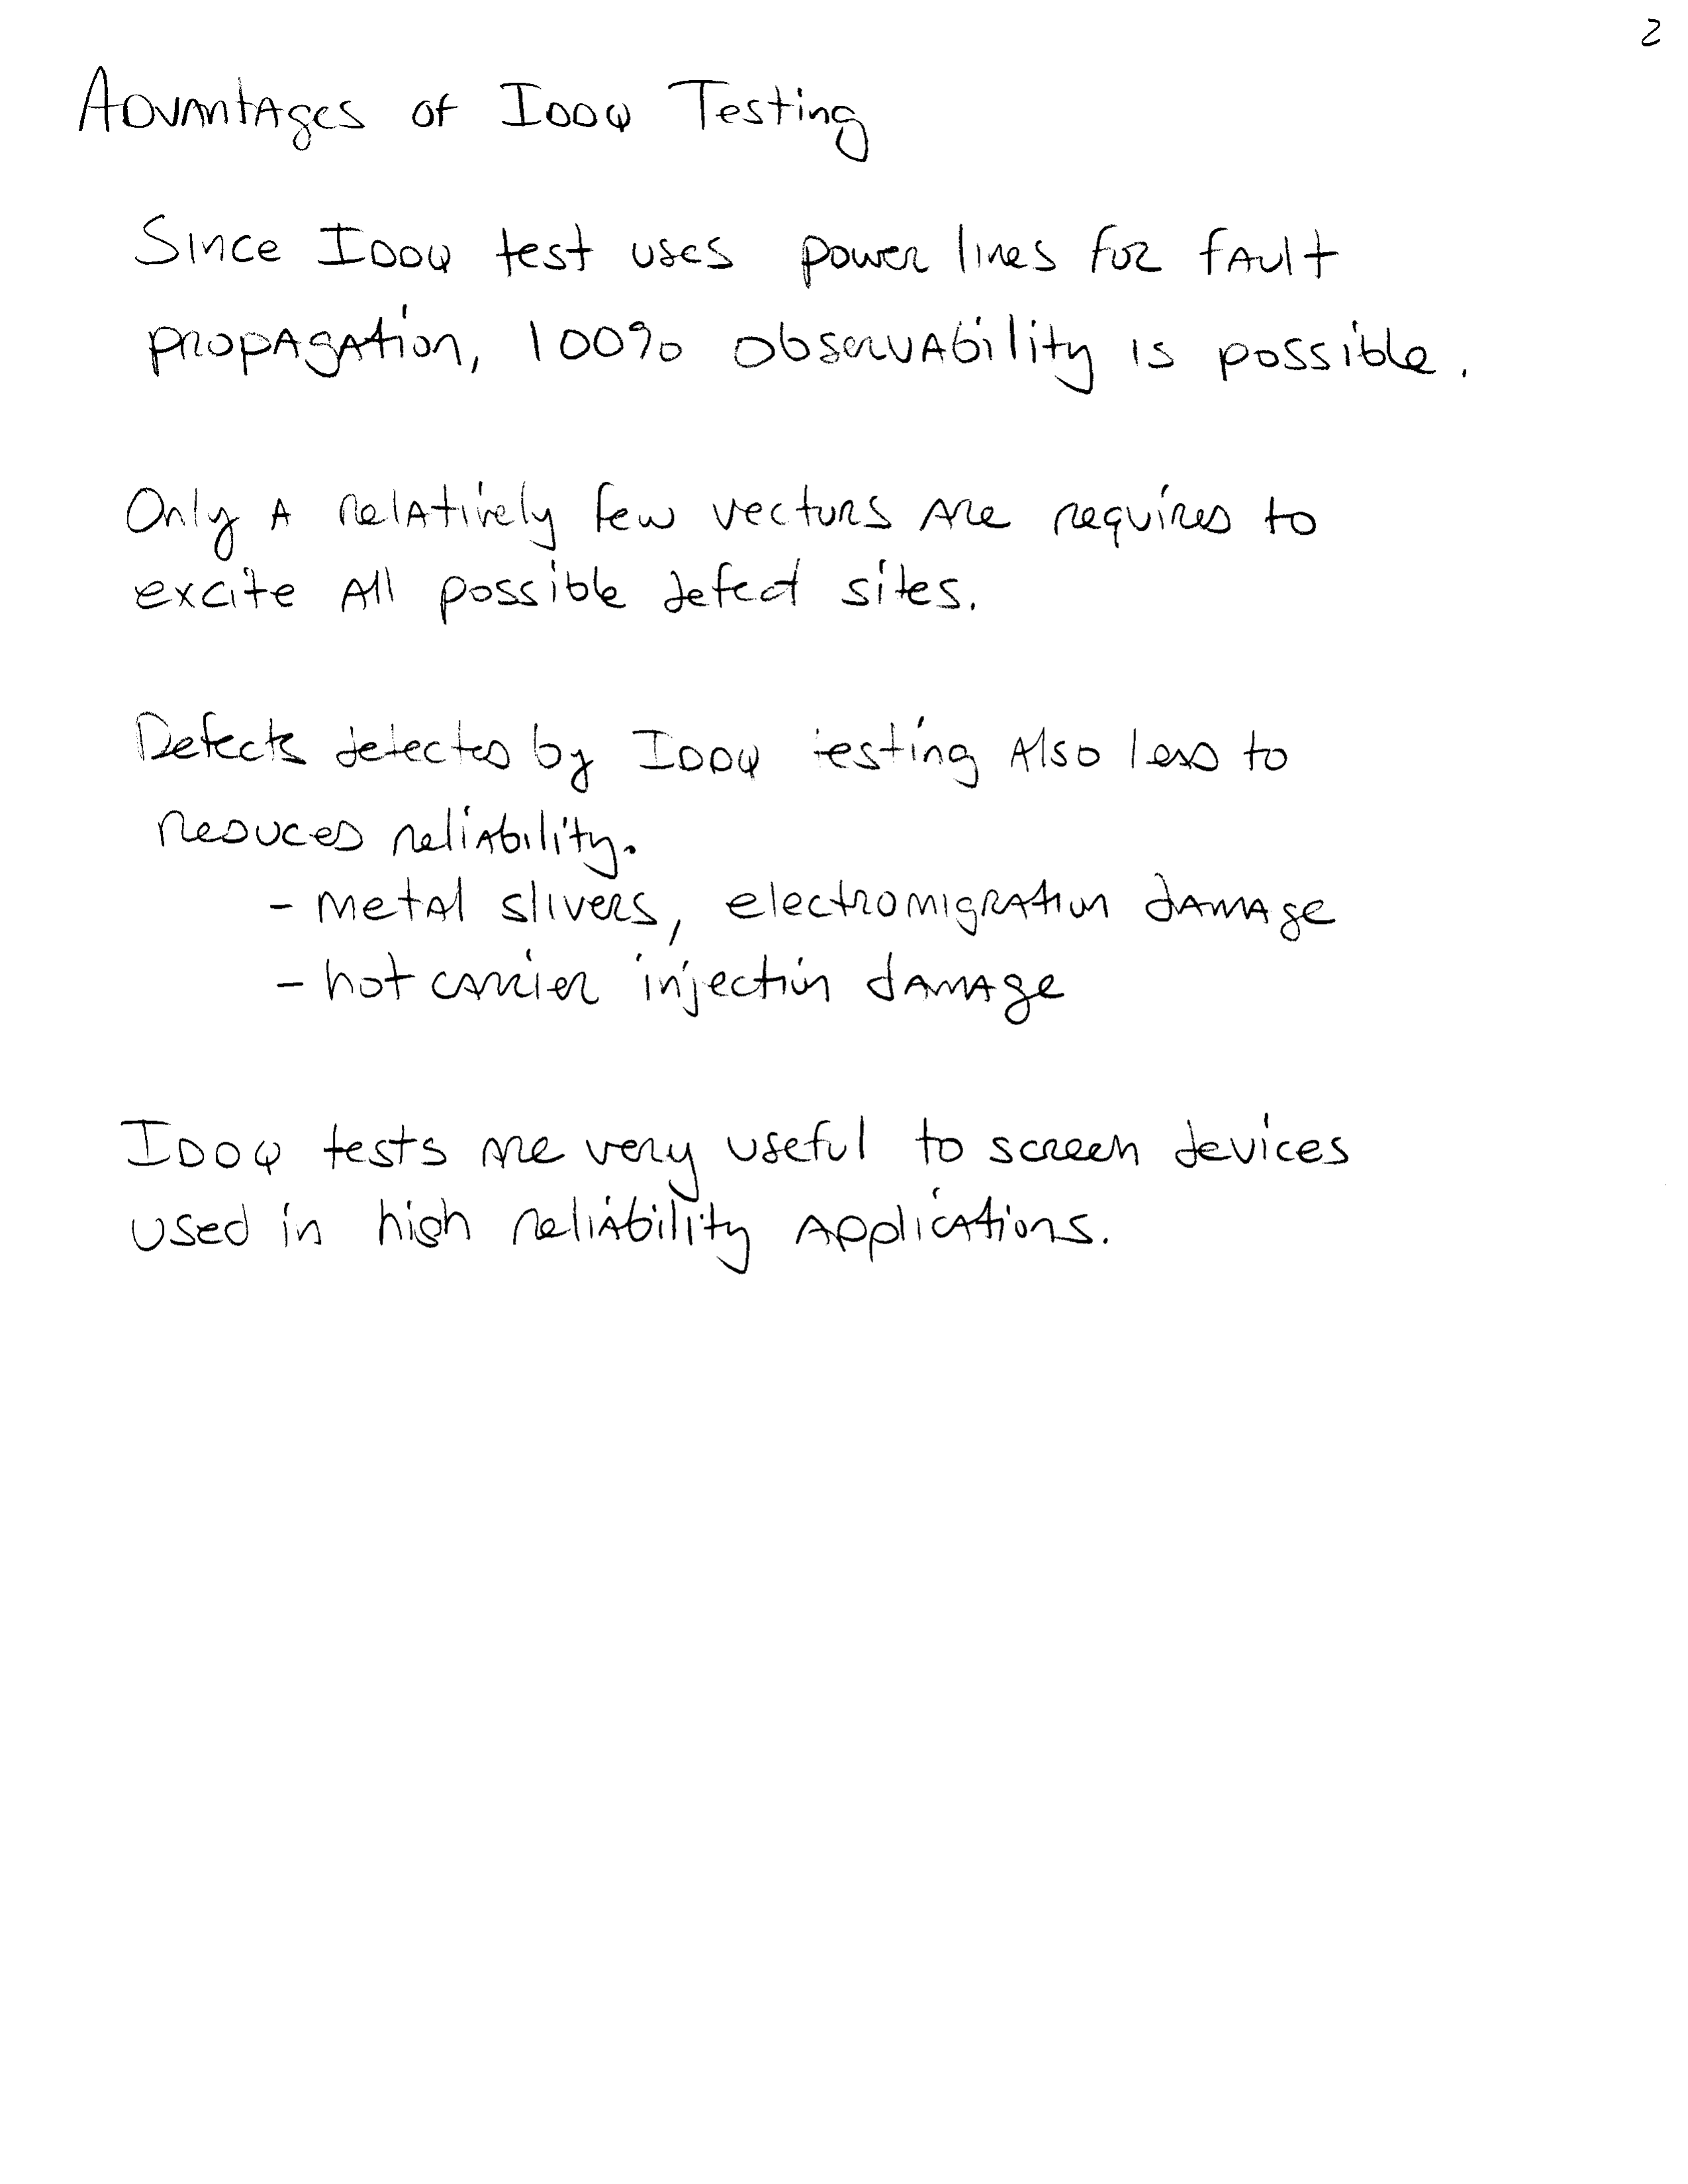 2
Advantages of IDDQ Testing
Since IDDQ test uses power lines for fault
propagation, 100% observability is possible.
Only a relatively few vectors are required to
excite all possible defect sites.
Defects detected by IDDQ testing also lead to
reduced reliability.
- metal slivers, electromigration damage
- hot carrier injection damage
IDDQ tests are very useful to screen devices
used in high reliability applications.